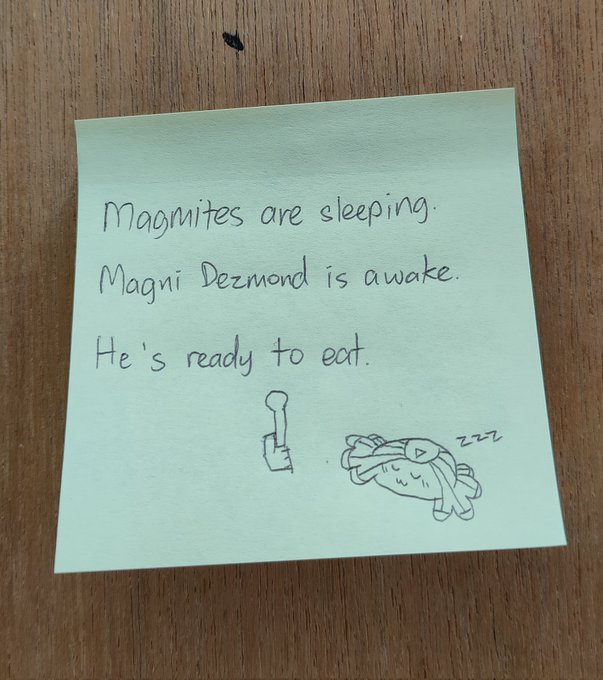 Magmites are sleeping.
Magni Dezmond is awake.
He's ready to eat.
zzz